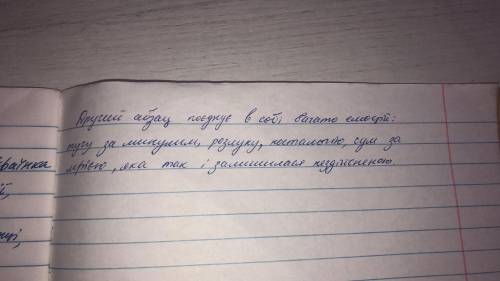 Другий абзац поєднує в собі багато емоцій:
тугу за минулим, розлуку, ностальгію, сум за
мрією, яка так і залишилася нездійсненою.